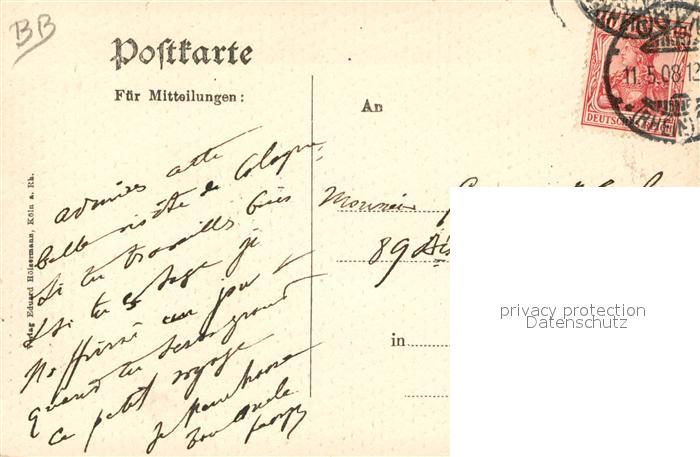 BB
Postkarte
Für Mitteilungen:
An
11.5.08.12
DEUTSCHES
(RHEIN)
admires cette
belle visite de Cologne,
si tu travailles bien
& si tu es sage je
t'offrirai un jour
quand tu seras grand
ce petit voyage
je t'embrasse
ton oncle
Monsieur
89 bis
in
Verlag Eduard Hölzermann, Köln a. Rh.
privacy protection
Datenschutz